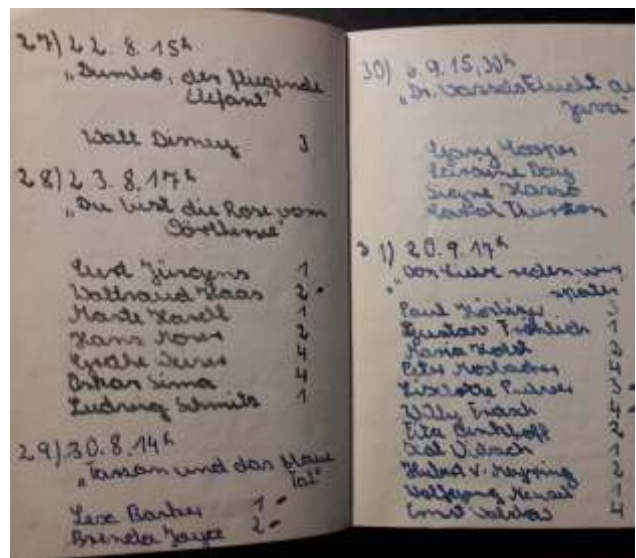 27) 22. 8. 15h
"Dumbo, der fliegende
Elefant"
Walt Disney 3
28) 23. 8. 17h
"Du bist die Rose vom
Wörthersee"
Curd Jürgens 1
Waltraud Haas 2
Marte Harell 1
Hans Moser 2
Grethe Weiser 4
Oskar Sima 4
Ludwig Schmitz 1
29) 30. 8. 14h
"Tarzan und das blaue
Tal"
Lex Barker 1
Brenda Joyce 2
30) 6. 9. 15,30h
"Dr. Wassels Flucht au
Java"
Gary Cooper
Laraine Day
Signe Hasso
Carol Thurston
31) 20. 9. 17h
"Von Liebe reden wir
später
Paul Hörbiger 3
Gustav Fröhlich 1
Maria Holst 2
Peter Mosbacher 4
Liselotte Pulver 3
Willy Fritsch 4
Fita Benkhoff 2
Carl 1
Hubert v. Meyerinck 2
Wolfgang Neuss 1
Ernst Waldow 4